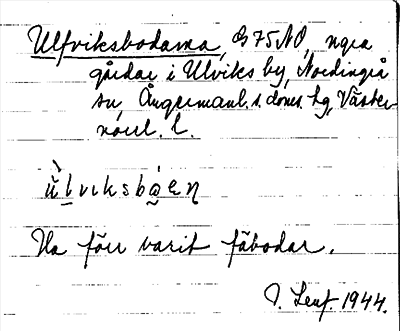 Ulfviksbodarna, G 75 NO, några
gårdar i Ulviks by, Nordingrå
sn, Ångermanl. s. doms. hg, Väster-
norrl. l.
ùlviksbɷ́eɳ
Ha förr varit fäbodar.
1944.